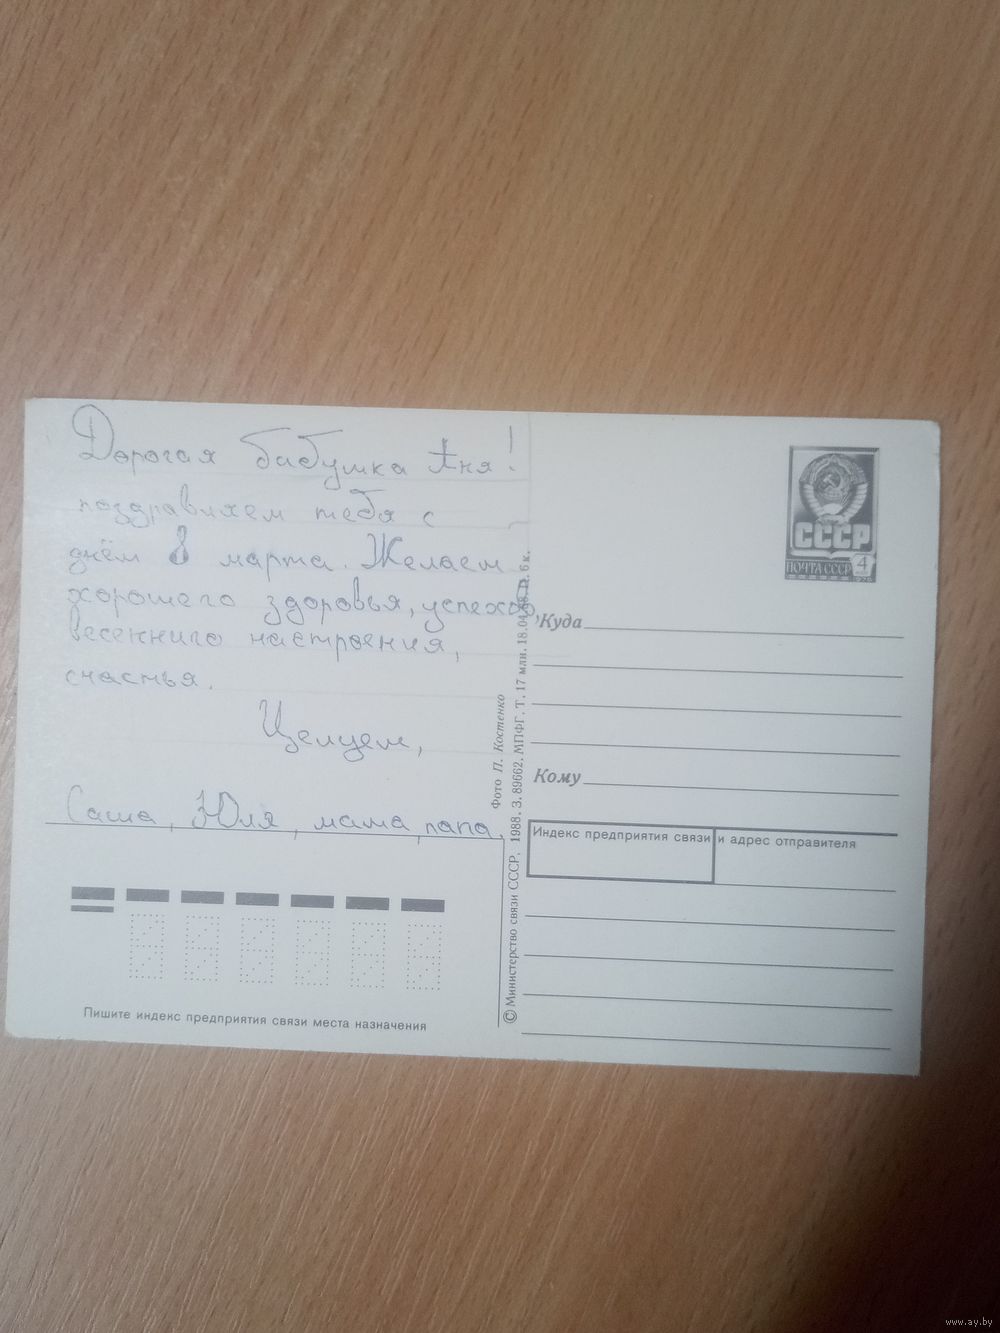 Дорогая бабушка Аня!
поздравляем тебя с
днём 8 марта. Желаем
хорошего здоровья, успехов,
весеннего настроения,
счастья.
Целуем,
Саша, Юля, мама, папа.
Пишите индекс предприятия связи места назначения
Фото П. Костенко
© Министерство связи СССР. 1988. З. 89662. МПФГ. Т. 17 млн. 18.04.88. Ц. 6 к.
СССР
ПОЧТА СССР 4
Куда
Кому
Индекс предприятия связи и адрес отправителя
www.ay.by